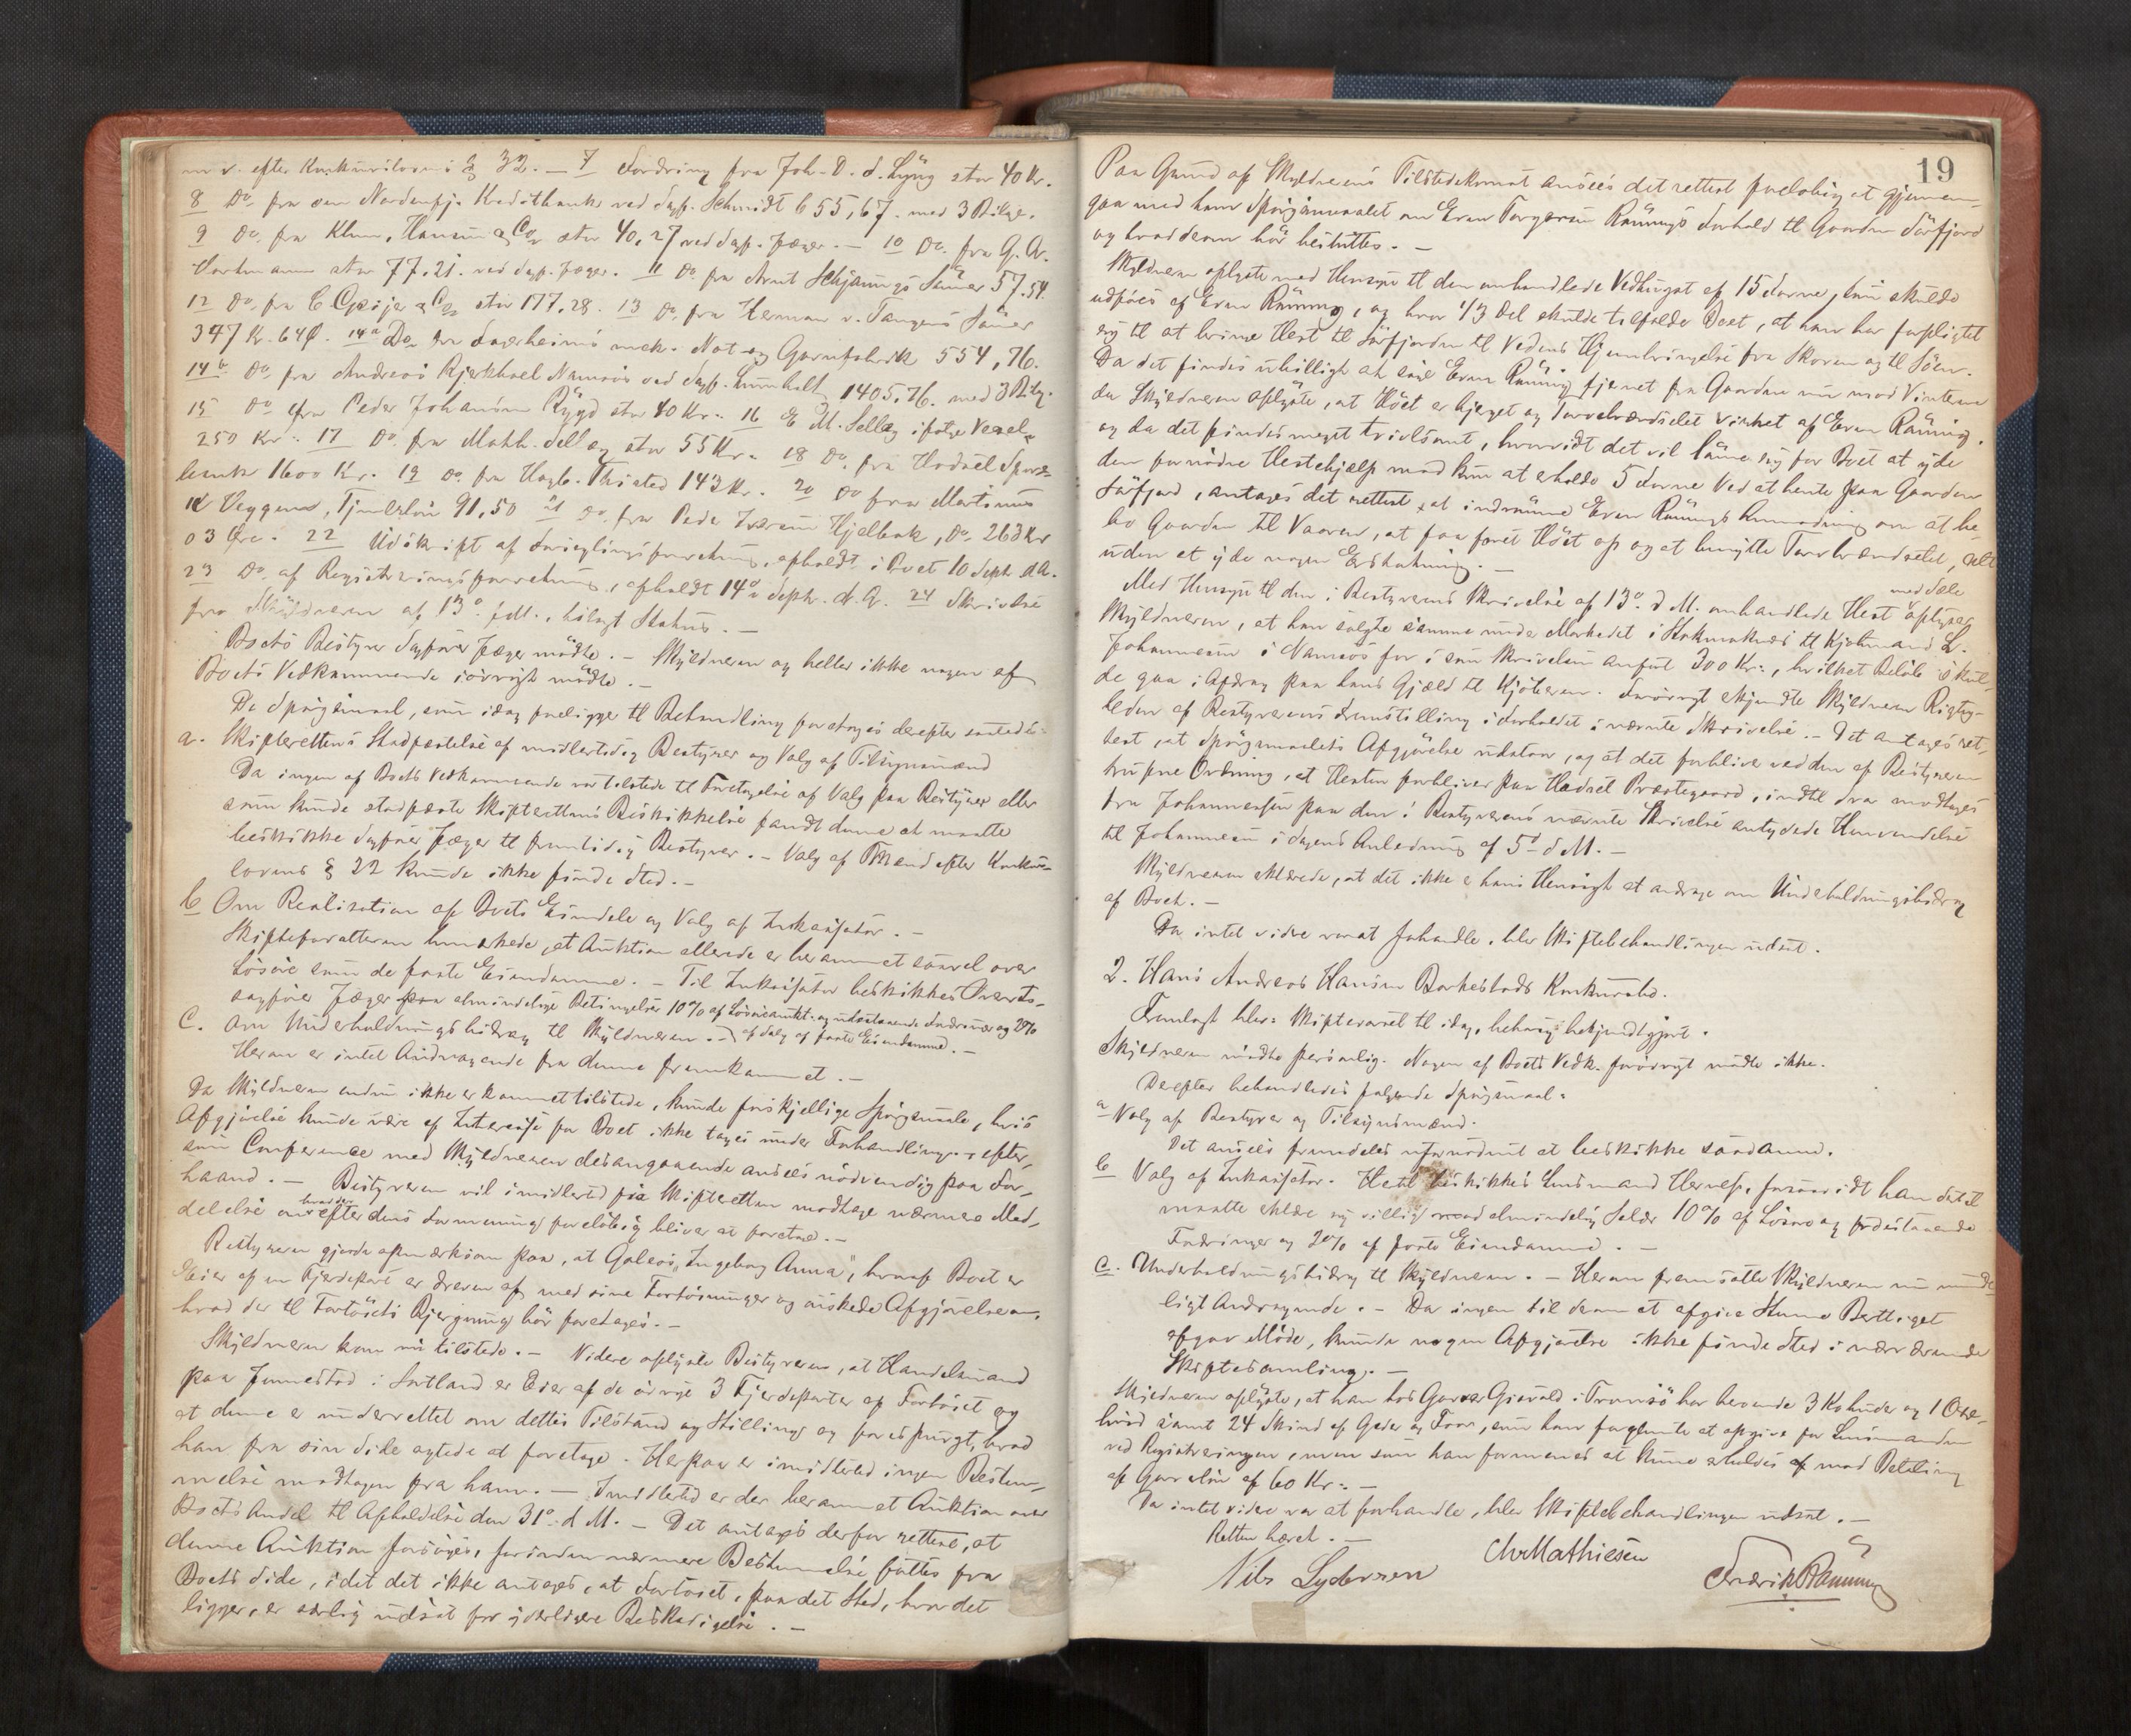 m v. efter Konkurslovens § 32. — 7 Fordring fra Joh. D. S. Lyng stor 40 Kr.
8 Do fra den Nordenfj. Kreditbank ved Sagf. Schmidt 655,67. med 3 Bilag.
9 Do. fra Klem, Hansen & Co stor 40,27 ved Sagf. Jæger. — 10 Do. fra G. A.
stor 77.21. ved Sagf. Jæger. 11 Do. fra Arnt Schjønings Sønner 57.54.
12 Do. fra C. & Co stor 177,28. 13 Do. fra Herman v. Tangens Sønner
347 Kr. 64 Ø. 14 a Do. fra Fagerheims mek. Not og Garnfabrik 554,76.
14 b. Do. fra Andreas Namsos ved Sagf. 1405,76. med 3 Bilg.
15 Do fra Peder Johansen stor 40 Kr. 16 E M. Sellæg ifølge Vexel
250 Kr. 17 Do. fra Math. Sellæg stor 55 Kr. 18 Do. fra Hadsel Spare-
bank 1600 Kr. 19 Do. fra Hagb. Thisted 143 Kr. 20 Do fra Martinus
Veggen, Tjenerløn 91,50 21 Do. fra Peder Iversen, Do. 263 Kr
03 Øre. 22 Udskrift af Forseglingsforretning, afholdt i Boet 10 Septb. d.A.
23 Do. af Registreringsforretning, afholdt 14de Septbr. d.A. 24 Skrivelse
fra Skyldneren af 13de f.M., bilagt Status. —
Boets Bestyrer Sagfører Jæger mødte. — Skyldneren og heller ikke nogen af
Boets Vedkommende iøvrigt mødte. —
De Spørgsmaal, som idag foreligger til Behandling foretoges derefter saaledes:
a. Skifterettens Stadfæstelse af midlertidig Bestyrer og Valg af Tilsynsmænd
Da ingen af Boets Vedkommende var tilstede til Foretagelse af Valg paa Bestyrer eller
som kunde stadfæste Skifterettens Beskikkelse fandt denne at maatte
beskikke Sagfører Jæger til fremtidig Bestyrer. — Valg af Tilsynsmænd efter Konkurs-
lovens § 22 kunde ikke finde Sted. —
b Om Realisation af Boets Eiendele og Valg af Inkassator. —
Skifteforvalteren bemærkede, at Auktion allerede er berammet saavel over
Løsøre som de faste Eiendomme. — Til Inkassator beskikkes Overrets-
sagfører Jæger paa almindelige Betingelser 10% af Løsøreaukt. og udestaaende Fordringer og 2%
c. Om Underholdningsbidrag til Skyldneren. — af Salg af faste Eiendomme. —
Herom er intet Andragende fra denne fremkommet. —
Da Skyldneren endnu ikke er kommet tilstede, kunde forskjellige Spørgsmaale, hvis
Afgjørelse kunde være af Interesse for Boet ikke tages under Forhandling, efter-
som Conference med Skyldneren desangaaende ansees nødvendig paa For-
haand. — Bestyreren vil imidlertid fra Skifteretten modtage nærmere Med-
delelse om hvad der efter dens Formening foreløbig bliver at foretage. —
Bestyreren gjorde opmærksom paa, at Galeas "Ingeborg Anna", hvoraf Boet er
Eier af en Fjerdepart er dreven af med sine Fortøininger og æskede Afgjørelse om,
hvad der til Fartøiets Bjergning bør foretages. —
Skyldneren kom nu tilstede. — Videre oplyste Bestyreren, at Handelsmand
paa Jennestad i Sortland er Eier af de øvrige 3 Fjerdeparter af Fartøiet og
at denne er underrettet om dettes Tilstand og Stilling og forespurgt, hvad
han fra sin Side agtede at foretage. — Herpaa er imidlertid ingen Bestem-
melse modtagen fra ham. — Imidlertid er der berammet Auktion over
Boets Andel til Afholdelse den 31te d.M. — Det antages derfor rettest, at
denne Auktion forsøges, forinden nærmere Bestemmelse fattes fra
Boets Side, idet det ikke antages, at Fartøiet, paa det Sted, hvor det
ligger, er særlig udsat for yderligere Beskadigelse. —
19
Paa Grund af Skyldnerens Tilstedekomst ansees det rettest foreløbig at gjennem-
gaa med ham Spørgsmaalet om Even Torgersen Rønnings Forhold til Gaarden Sørfjord
og hvad derom bør besluttes. —
Skyldneren oplyste med Hensyn til den omhandlede Vedhugst af 15 Favne, som skulde
udføres af Even Rønning, og hvor 1/3 Del skulde tilfalde Boet, at han har forpligtet
sig til at bringe Hest til Sørfjorden til Vedens Hjembringelse fra Skoven og til Søen.
Da det findes ubilligt at faae Even Rønning fjernet fra Gaarden nu mod Vinteren
da Skyldneren oplyste, at Høet er bjerget og Torvebrændselet virket af Even Rønning,
og da det findes meget tvivlsomt, hvorvidt det vil lønne sig for Boet at yde
den fornødne Hestehjælp mod kun at erholde 5 Favne Ved at hente paa Gaarden
Sørfjord, antages det rettest, at indrømme Even Rønnings Anmodning om at be-
bo Gaarden til Vaaren, at faa foret Høet op og at benytte Torvbrændselet, alt
uden at yde nogen Erstatning. —
Med Hensyn til den i Bestyrerens Skrivelse af 13de d.M. omhandlede Hest med Sele oplyser
Skyldneren, at han solgte samme under Markedet i Stokmarknes til Kjøbmand L.
Johannesen i Namsos for i sin Skrivelse anført 300 Kr., hvilket Beløb skul-
de gaa i Afdrag paa hans Gjæld til Kjøberen. Forøvrigt erkjendte Skyldneren Rigtig-
heden af Bestyrerens Fremstilling i Forholdet i nævnte Skrivelse. — Det antages ret-
test, at Spørgsmaalets Afgjørelse udstaar, og at det forbliver ved den af Bestyreren
trufne Ordning, at Hesten forbliver paa Hadsel Præstegaard, indtil Svar modtages
fra Johannesen paa den i Bestyrerens nævnte Skrivelse antydede Henvendelse
til Johannesen i Sagens Anledning af 5te d.M. —
Skyldneren erklærede, at det ikke er hans Hensigt at andrage om Underholdningsbidrag
af Boet. —
Da intet videre var at forhandle, blev Skiftebehandlingen udsat.
2. Hans Andreas Hansen Borkestads Konkursbo.
Fremlagt blev: Skiftevarsel til idag, behørig bekjendtgjort.
Skyldneren mødte personlig. Nogen af Boets Vedk. forøvrigt mødte ikke.
Derefter behandledes følgende Spørgsmaal:
a Valg af Bestyrer og Tilsynsmænd.
Det ansees fremdeles ufornødent at beskikke saadanne.
b Valg af Inkassator. Hertil beskikkes Lensmand, forsaavidt han dertil
maatte erklære sig villig mod almindelig Salær 10% af Løsøre og udestaaende
Fordringer og 2% af faste Eiendomme. —
c. Underholdningsbidrag til Skyldneren. — Herom fremsatte Skyldneren nu mundt-
ligt Andragende. — Da ingen til derom at afgive Stemme Berettiget
afgav Møde, kunde nogen Afgjørelse ikke finde Sted i nærværende
Skiftesamling. —
Skyldneren oplyste, at han hos Garver Gievald i Tromsø har beroende 3 Kohuder og 1 Oxe-
hud samt 24 Skind af Geder og Faar, som han forglemte at opgive for Lensmanden
ved Registreringen, men som han formener at kunne erholdes mod Betaling
af Garveløn af 60 Kr. —
Da intet videre var at forhandle, blev Skiftebehandlingen udsat. —
Retten hævet. —
Chr Mathiesen
Nils Sydersen
Fredrik Rønning